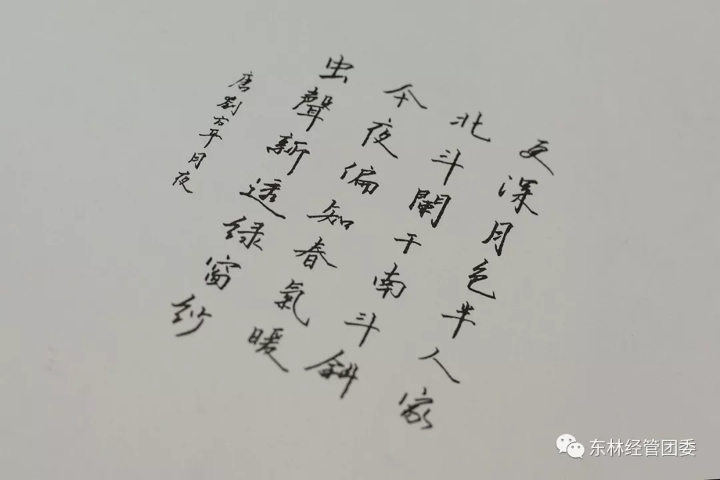 更深月色半人家
北斗闌干南斗斜
今夜偏知春氣暖
虫聲新透绿窗紗
唐刘方平月夜
东林经管团委